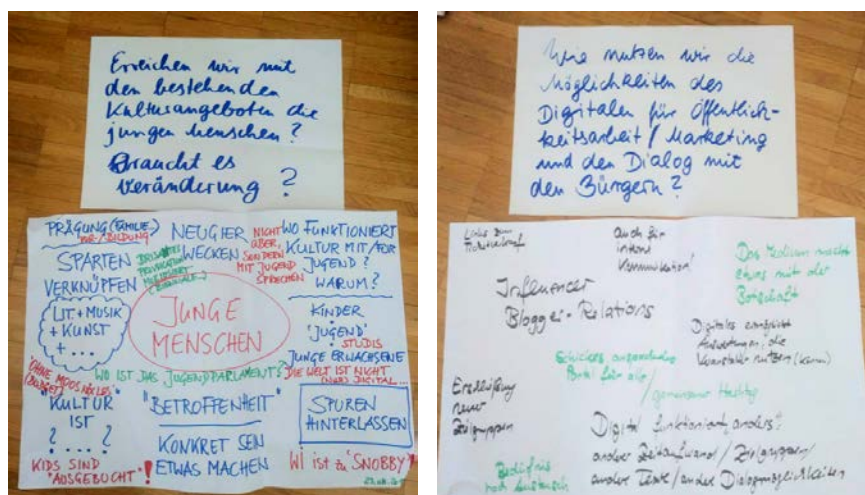 Erreichen wir mit
den bestehenden
Kulturangeboten die
jungen Menschen?
Braucht es
Veränderung?
PRÄGUNG (FAMILIE)
VOR-/BILDUNG
NEUGIER
WECKEN
NICHT
ÜBER,
SONDERN
MIT JUGEND
SPRECHEN
WO FUNKTIONIERT
KULTUR MIT/FÜR
JUGEND?
WARUM?
SPARTEN
VERKNÜPFEN
PROVOKATION
LIT + MUSIK
+ KUNST
+ ...
JUNGE
MENSCHEN
KINDER
'JUGEND'
STUDIS
JUNGE ERWACHSENE
DIE WELT IST NICHT
(NUR) DIGITAL...
WO IST DAS JUGENDPARLAMENT?
"OHNE MOOS NIX LOS"
(BUDGET)
"KULTUR
IST
? ... ?
"BETROFFENHEIT"
SPUREN
HINTERLASSEN
KONKRET SEIN
ETWAS MACHEN
KIDS SIND
"AUSGEBUCHT"!
WI IST ZU 'SNOBBY'
Wie nutzen wir die
Möglichkeiten des
Digitalen für Öffentlich-
keitsarbeit / Marketing
und den Dialog mit
den Bürgern?
Links zum
Ticketverkauf
auch für
interne
Kommunikation!
Das Medium macht
etwas mit der
Botschaft
Influencer
Blogger-Relations
Digitales ermöglicht
Auswertungen, die
Veranstalter nutzen (kann)
Schickes ansprechendes
Portal für alle /
gemeinsamer Hashtag
Erschließung
neuer
Zielgruppen
Digital funktioniert anders:
ander Zeitaufwand / Zielgruppen /
ander Texte / ander Dialogmöglichkeiten
Bedürfnis
nach Austausch